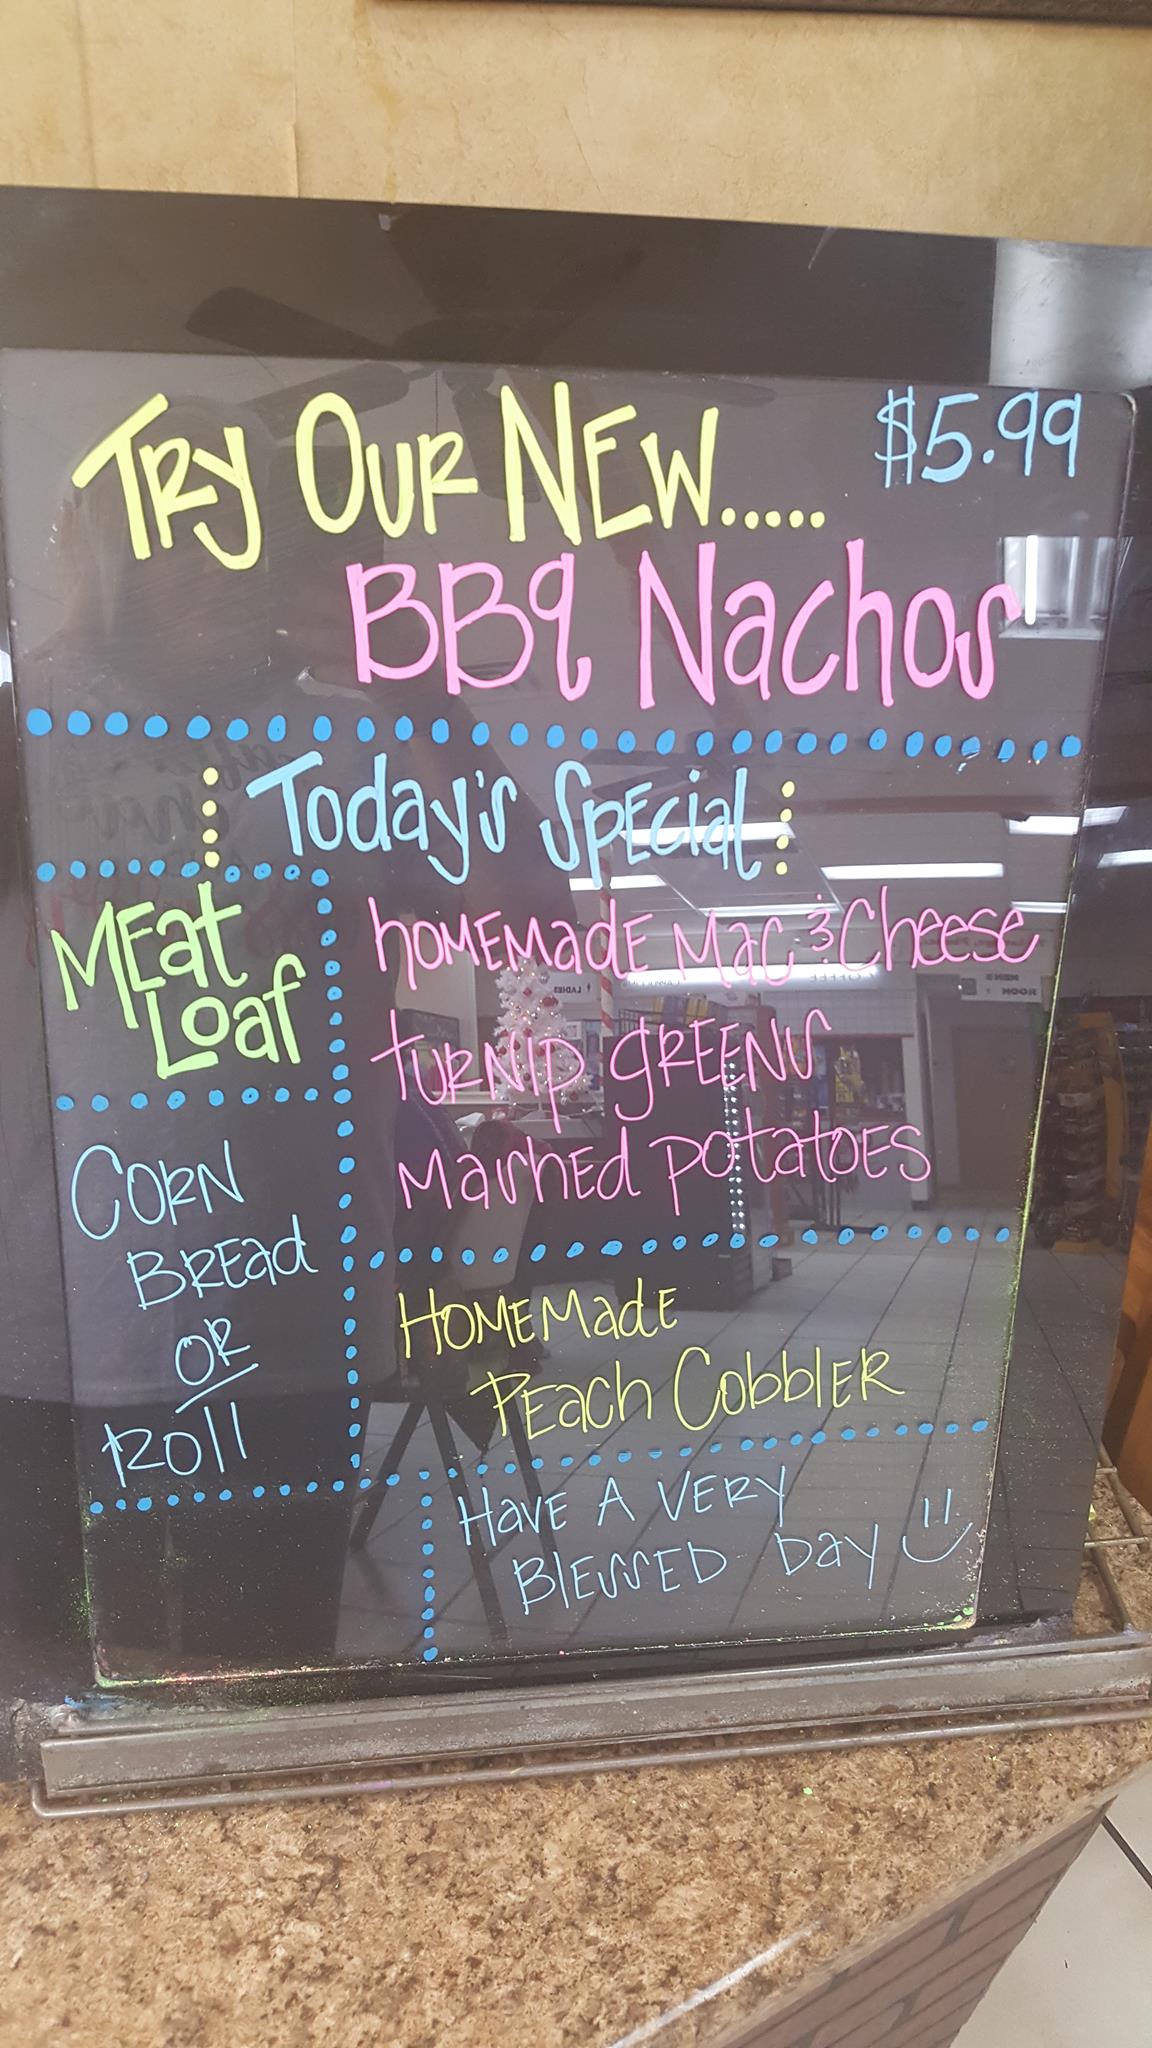 Try Our New..... $5.99
BBq Nachos
Today's Special
Meat
Loaf
Corn
Bread
OR
Roll
homemade mac & Cheese
turnip greens
mashed potatoes
Homemade
Peach Cobbler
Have A very
Blessed day
LADIES
MEN